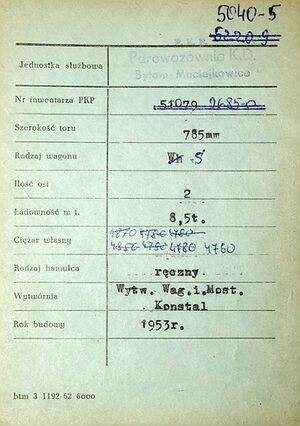 5040-5
5220-9
P.K.P.
Jednostka służbowa Parowozownia K.D.
Bytom-Maciejkowice
Nr inwentarza PKP 51079 9685-0
Szerokość toru 785mm
Rodzaj wagonu Wh S
Ilość osi 2
Ładowność w t. 8,5t.
4870 4780 4760
Ciężar własny 4850 4750 4780 4760
Rodzaj hamulca ręczny
Wytwórnia Wytw. Wag.i.Most.
Konstal
Rok budowy 1953r.
btm 3 1192-62 6000